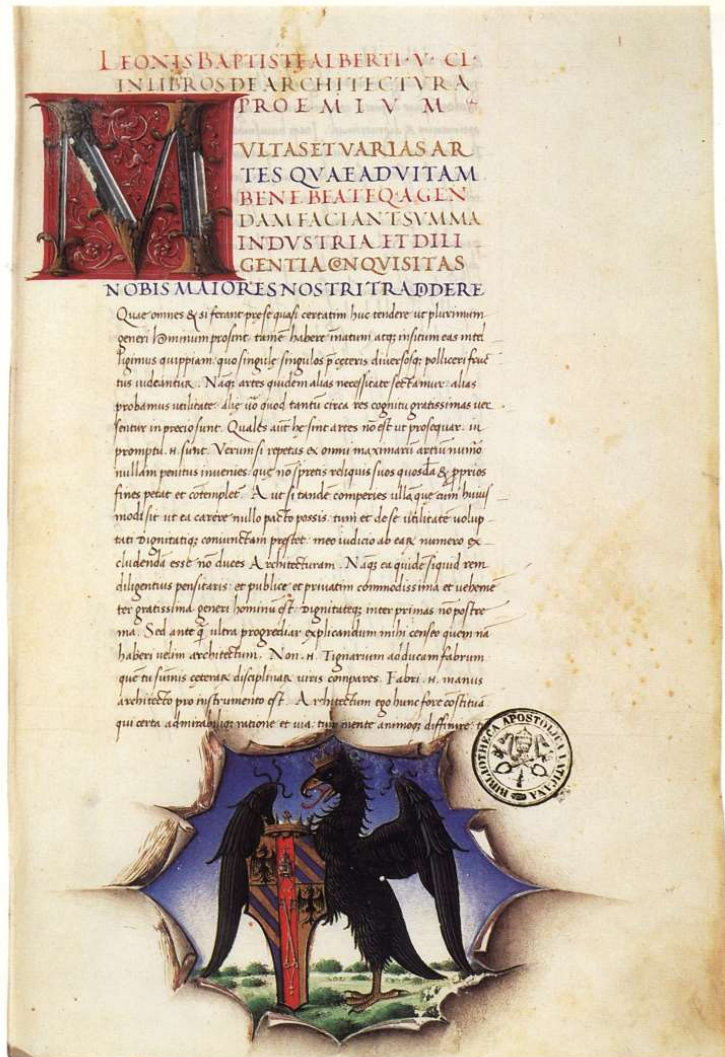 LEONIS BAPTISTE ALBERTI · V · CL ·
IN LIBROS DE ARCHITECTVRA
PROEMIVM
MVLTAS ET VARIAS AR
TES QVAE AD VITAM
BENE BEATEQ AGEN
DAM FACIANT SVMMA
INDVSTRIA ET DILI
GENTIA CONQVISITAS
NOBIS MAIORES NOSTRI TRADIDERE
Quae omnes & si ferant prese quasi certatim huc tendere ut plurimum
generi hominum prosint, tamē habere inatum atq; insitum eas intel
ligimus quippiam: quo singule singulos p ceteris diversosq; polliceri fruc
tus videantur. Naq; artes quidem alias necessitate sectamur: alias
probamus utilitate: alie vō quod tantū circa res cognitu gratissimas ver
sentur in precio sunt. Quales aūt he sint artes nō est ut prosequar: in
promptu .n. sunt. Verum si repetas ex omni maximarū artiū numō
nullam penitus invenies: que nō spretis reliquis suos quosdā & pprios
fines petat et cōtemplet. Aut si tandē comperies ullā que cum huius
modi sit ut ea carere nullo pacto possis: tum et de se utilitatē volup
tati dignitatiq; coniunctam prestet: meo iudicio ab eaꝝ numero ex
cludendā esse nō duces Architecturam. Naq; ea quidē siquid rem
diligentius pensitaris: et publice et privatim commodissima et vehemē
ter gratissima generi hominū est: dignitateq; inter primas nō postre
ma. Sed ante q̄ ultra progrediar explicandum mihi censeo quem nā
haberi velim architectum. Non .n. Tignarium adducam fabrum
que tu sūmis ceteraꝝ disciplinaꝝ viris compares. Fabri .n. manus
architecto pro instrumento est. Architectum ego hunc fore cōstituā
qui certa admirabiliq; ratione et via: tum mente animoq; diffinire:
BIBLIOTHECA APOSTOLICA VATICANA